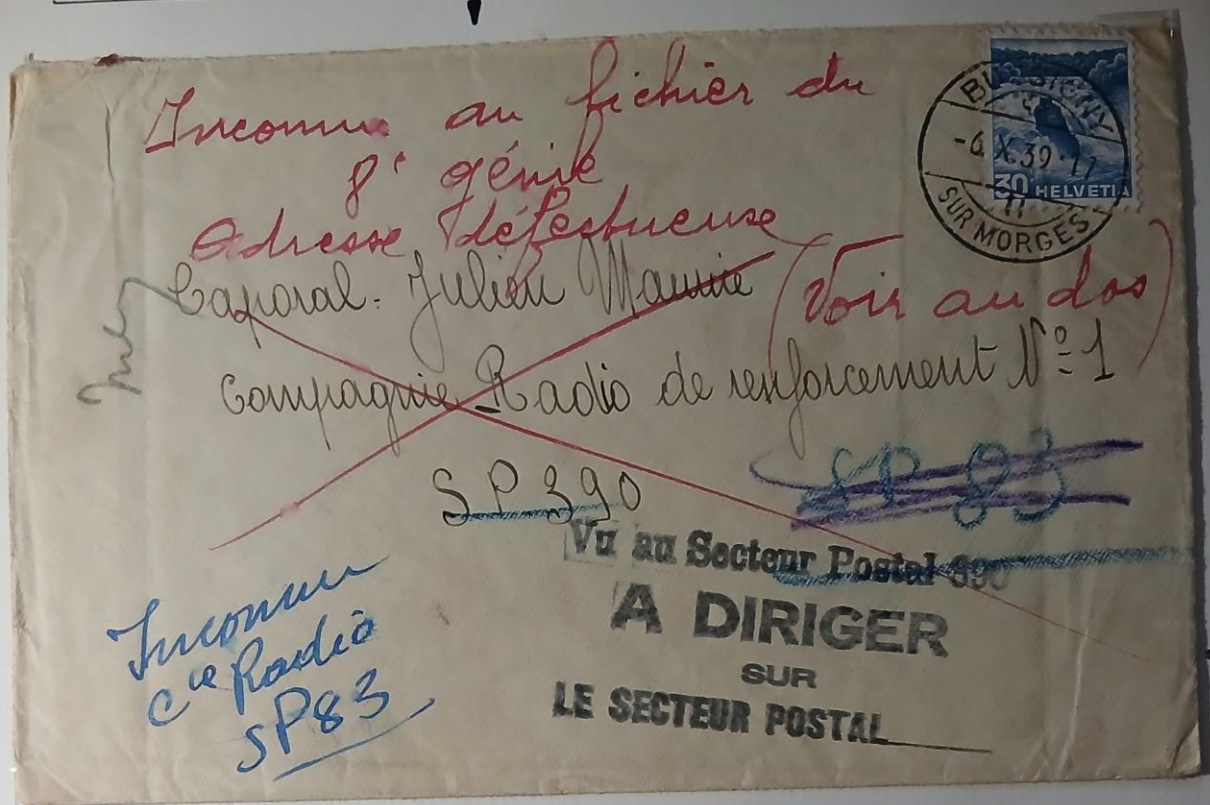 Inconnu au fichier du
8e génie
Adresse défectueuse
(Voir au dos)
BUSSIGNY
-6.X.39 17
SUR MORGES
30 HELVETIA
Caporal. Julien Maurice
Compagnie Radio de renforcement Nº 1
SP 390
SP 83
Vu au Secteur Postal 390
A DIRIGER
SUR
LE SECTEUR POSTAL
Inconnu
Cie Radio
SP83